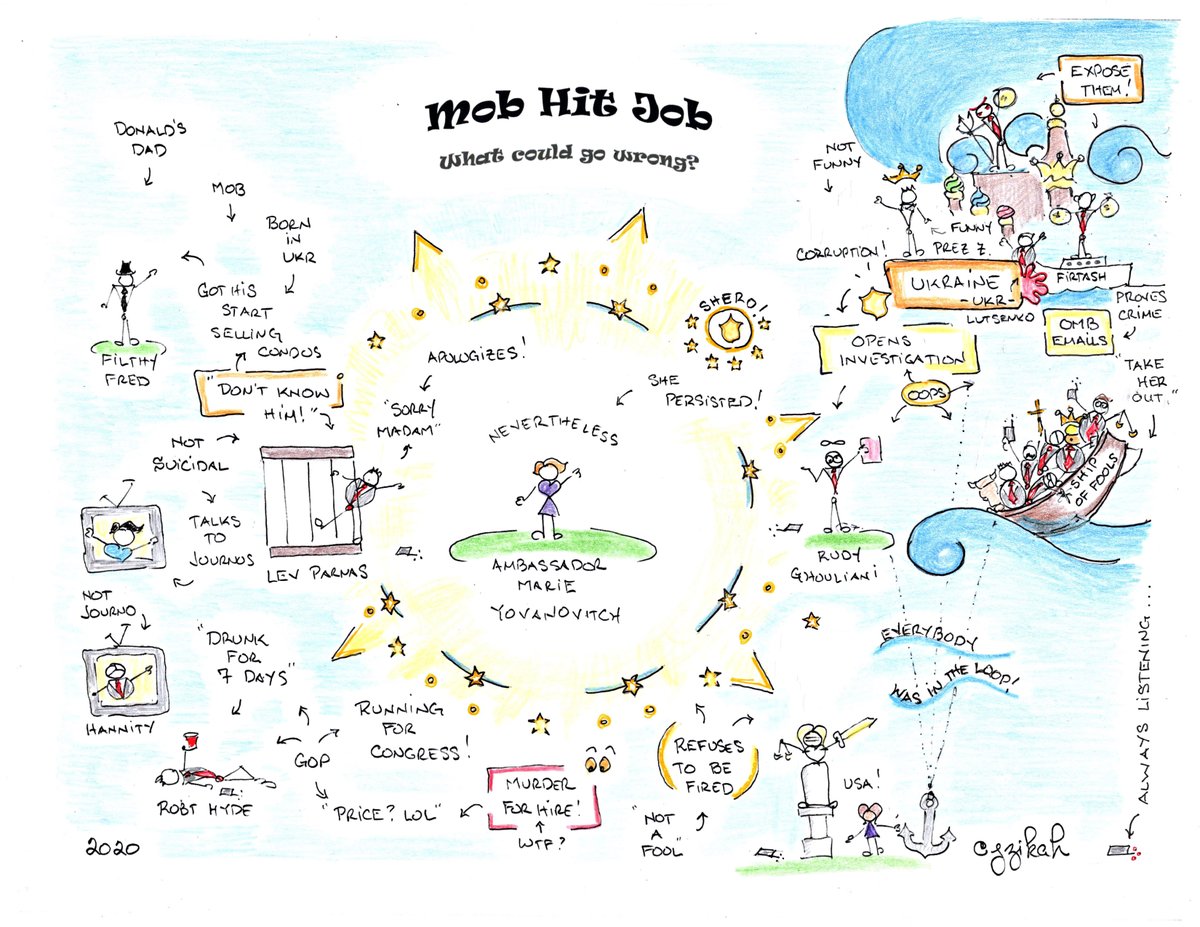 Mob Hit Job
What could go wrong?
DONALD'S
DAD
MOB
BORN
IN
UKR
GOT HIS
START
SELLING
CONDOS
FILTHY
FRED
"DON'T KNOW
HIM!"
NOT
SUICIDAL
TALKS
TO
JOURNOS
LEV PARNAS
APOLOGIZES!
"SORRY
MADAM"
NOT
JOURNO
HANNITY
"DRUNK
FOR
7 DAYS"
ROBT HYDE
GOP
RUNNING
FOR
CONGRESS!
"PRICE? LOL"
MURDER
FOR HIRE!
WTF?
NEVERTHELESS
SHE
PERSISTED!
SHERO!
AMBASSADOR
MARIE
YOVANOVITCH
REFUSES
TO BE
FIRED
"NOT
A
FOOL"
EXPOSE
THEM!
NOT
FUNNY
FUNNY
PREZ Z.
CORRUPTION!
UKRAINE
-UKR-
LUTSENKO
FIRTASH
PROVES
CRIME
OMB
EMAILS
OPENS
INVESTIGATION
OOPS
"TAKE
HER
OUT"
SHIP
OF FOOLS
RUDY
GHOULIANI
EVERYBODY
WAS IN THE LOOP!
USA!
ALWAYS LISTENING....
2020
©jzikah